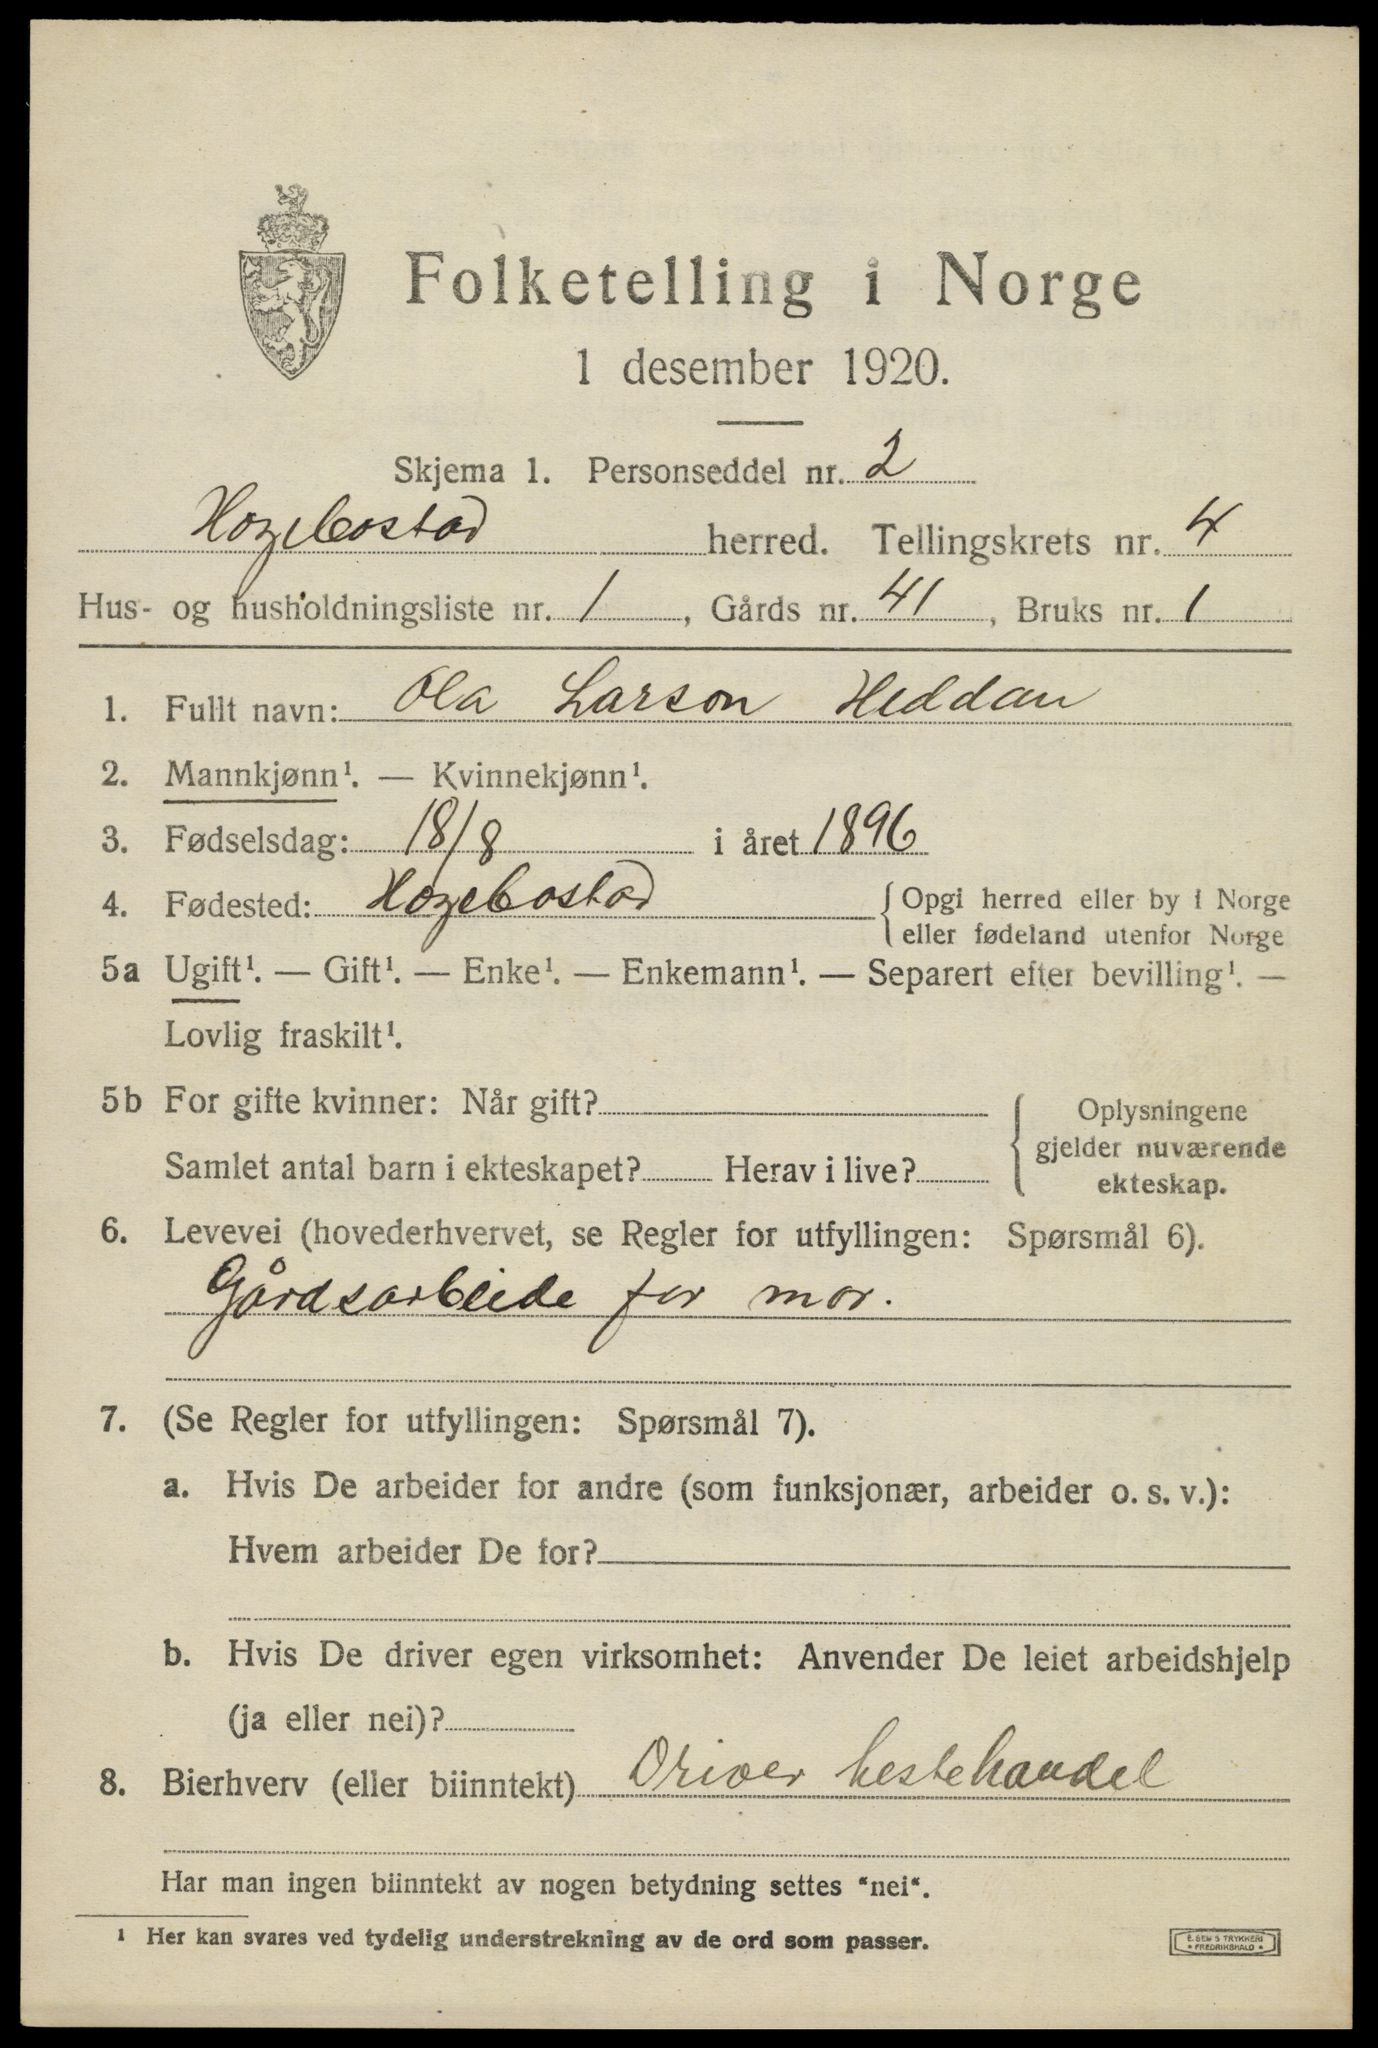 Folketelling i Norge
1 desember 1920.
Skjema 1. Personseddel nr. 2
Hægebostad herred. Tellingskrets nr. 4
Hus- og husholdningsliste nr. 1, Gårds nr. 41, Bruks nr. 1
1. Fullt navn: Ola Larson Heddan
2. Mannkjønn¹. — Kvinnekjønn¹.
3. Fødselsdag: 18/8 i året 1896
4. Fødested: Hægebostad {Opgi herred eller by i Norge
eller fødeland utenfor Norge
5a Ugift¹. — Gift¹. — Enke¹. — Enkemann¹. — Separert efter bevilling¹. —
Lovlig fraskilt¹.
5b For gifte kvinner: Når gift?
Samlet antal barn i ekteskapet? Herav i live?
{Oplysningene
gjelder nuværende
ekteskap.
6. Levevei (hovederhvervet, se Regler for utfyllingen: Spørsmål 6).
Gårdsarbeide for mor.
7. (Se Regler for utfyllingen: Spørsmål 7).
a. Hvis De arbeider for andre (som funksjonær, arbeider o. s. v.):
Hvem arbeider De for?
b. Hvis De driver egen virksomhet: Anvender De leiet arbeidshjelp
(ja eller nei)?
8. Bierhverv (eller biinntekt) Driver hestehandel
Har man ingen biinntekt av nogen betydning settes "nei".
¹ Her kan svares ved tydelig understrekning av de ord som passer.
E. SEM'S TRYKKERI
* FREDRIKSHALD *